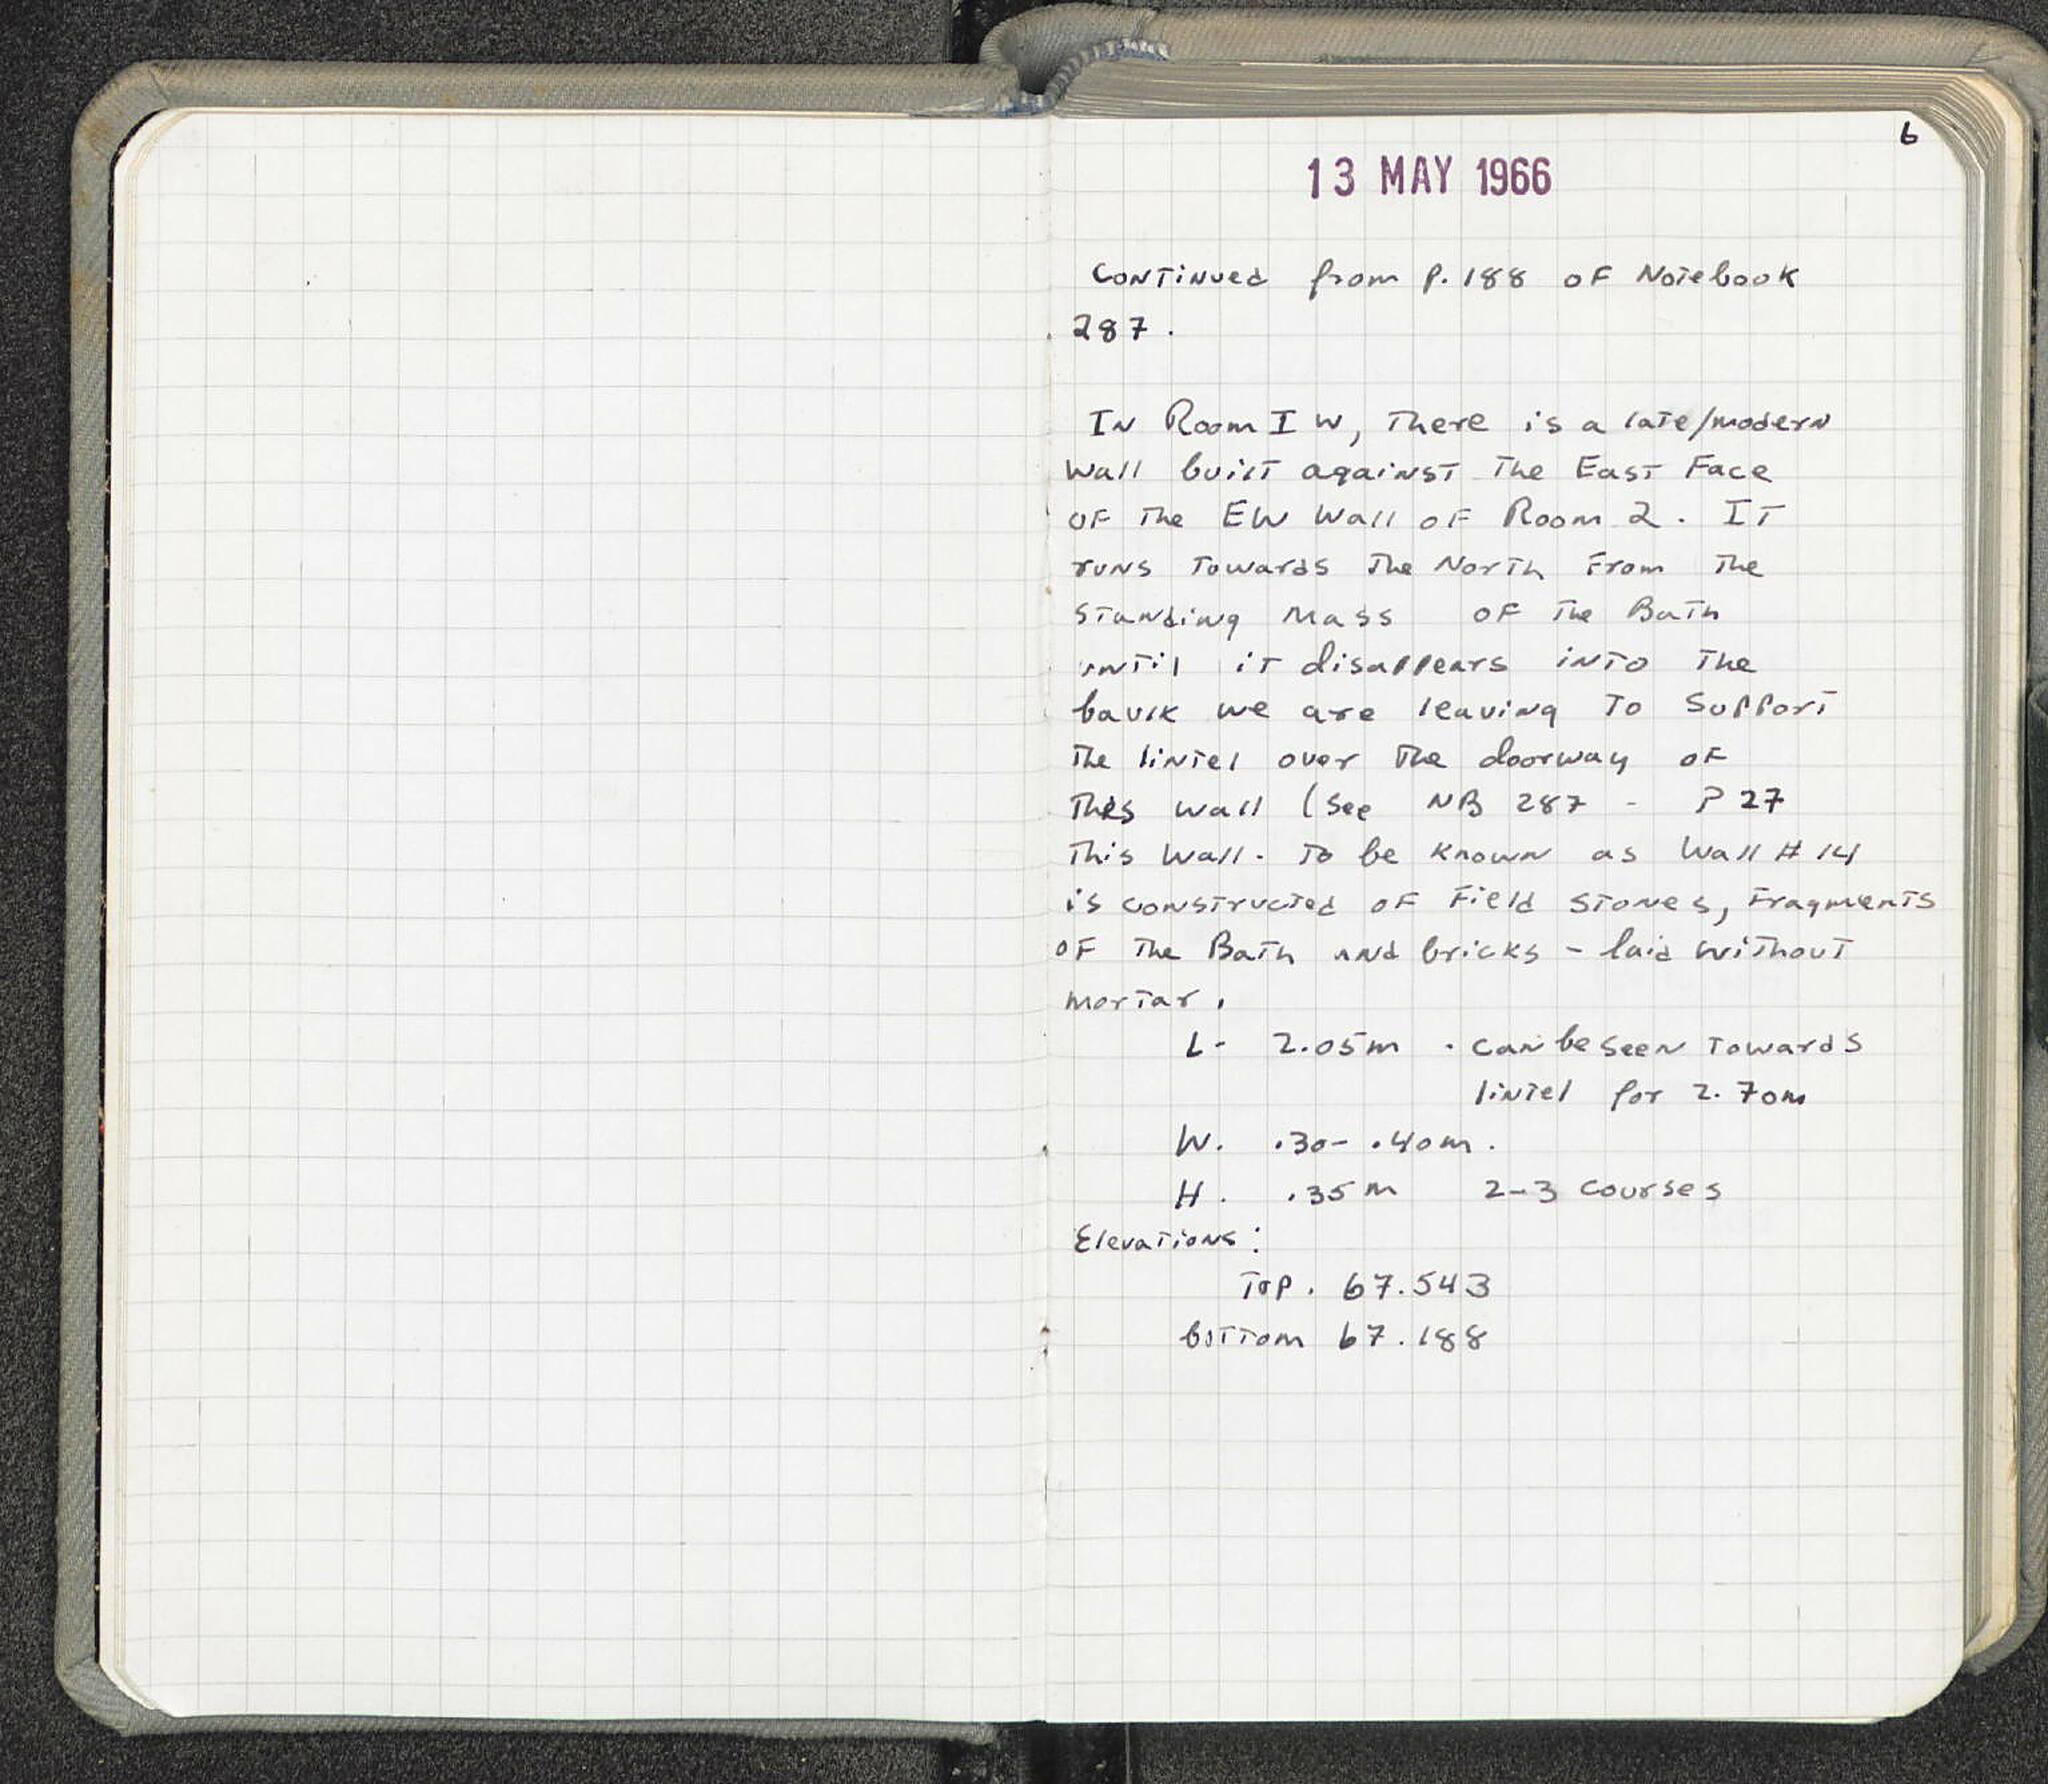 6
13 MAY 1966
Continued from p. 188 of Notebook
287.
In Room I W, there is a late/modern
wall built against the East Face
of the EW Wall of Room 2. It
runs towards the North from the
standing mass of the Bath
until it disappears into the
baulk we are leaving to support
the lintel over the doorway of
this wall (see NB 287 - P 27
This wall - to be known as Wall # 14
is constructed of field stones, fragments
of the Bath and bricks - laid without
mortar.
L - 2.05m . can be seen towards
lintel for 2.70m
W. .30 - .40m.
H. .35m 2-3 courses
Elevations:
Top. 67.543
bottom 67.188